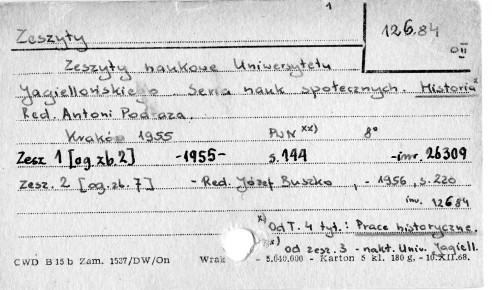 1
Zeszyty
126.84
OII
Zeszyty naukowe Uniwersytetu
Jagiellońskiego. Seria nauk społecznych. Historia x)
Red. Antoni Podraza.
Kraków 1955 PWN xx) 8°
Zesz 1 [og.zb.2] -1955- s.144 -inw. 26309
Zesz. 2 [og.zb.7] - Red. Józef Buszko, - 1956, s. 220
inw. 12684
x) Od T. 4 tyt.: Prace historyczne.
xx) od zesz. 3 - nakł. Univ. Jagiell.
CWD B 15 b Zam. 1537/DW/On Wrak - 5.040.000 - Karton 5 kl. 180 g. - 10.XII.68.